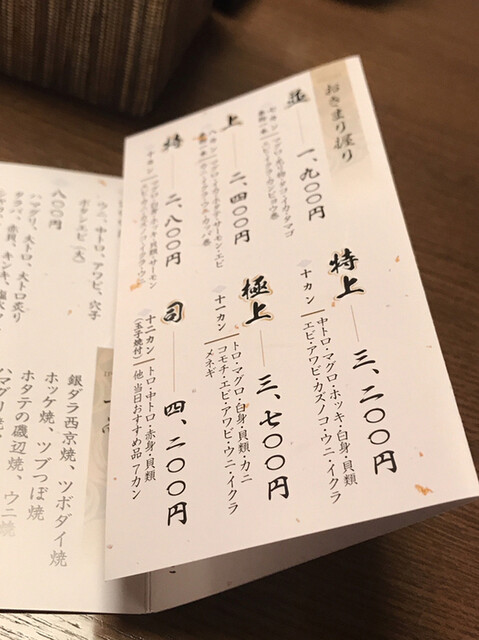 おきまり握り
並 ── 一、九〇〇円
上 ── 二、四〇〇円
特 ── 二、八〇〇円
十カン
特上 ── 三、二〇〇円
十カン
中トロ・マグロ・ホッキ・白身・貝類
エビ・アワビ・カズノコ・ウニ・イクラ
極上 ── 三、七〇〇円
十一カン
トロ・マグロ・白身・貝類・カニ
コモチ・エビ・アワビ・ウニ・イクラ
メネギ
司 ── 四、二〇〇円
十二カン
(玉子焼付)
トロ・中トロ・赤身・貝類
他、当日おすすめ品7カン
ウニ、中トロ、アワビ、穴子
ボタンエビ(大)
八〇〇円
ハマグリ、大トロ、大トロ炙り
タラバ、赤貝、キンキ、塩水
銀ダラ西京焼、ツボダイ焼
ホッケ焼、ツブつぼ焼
ホタテの磯辺焼、ウニ焼
ハマグリ焼